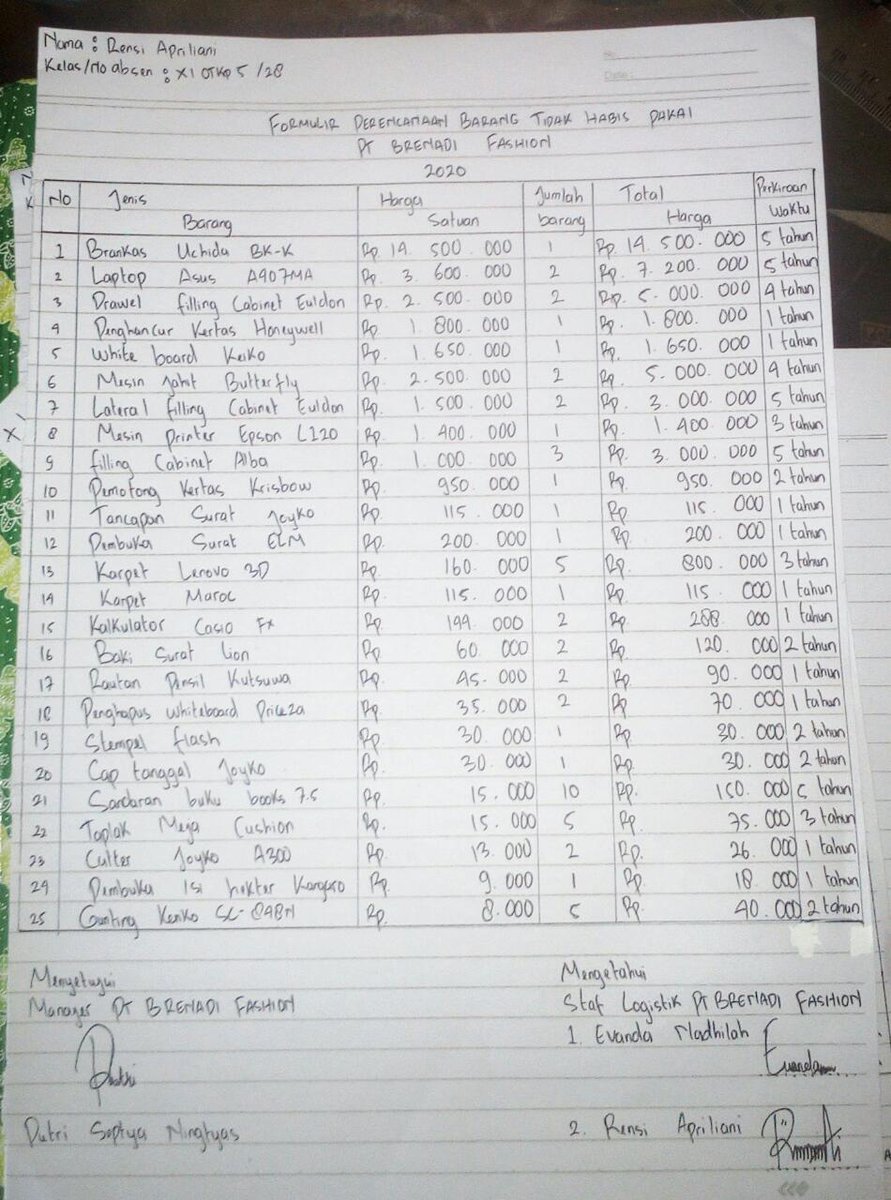 Nama : Rensi Apriliani
Kelas/No absen : XI OTKP 5 /28
No.
Date :
FORMULIR PERENCANAAN BARANG TIDAK HABIS PAKAI
PT BRENADI FASHION
2020
No Jenis Barang Harga Satuan Jumlah barang Total Harga Perkiraan Waktu
1 Brankas Uchida BK-K Rp 14. 500. 000 1 Rp 14. 500. 000 5 tahun
2 Laptop Asus A407MA Rp. 3. 600. 000 2 Rp. 7. 200. 000 5 tahun
3 Drawel filling Cabinet Euldon Rp. 2. 500. 000 2 Rp. 5. 000. 000 4 tahun
4 Penghancur Kertas Honeywell Rp 1. 800. 000 1 Rp. 1. 800. 000 1 tahun
5 White board Keiko Rp 1. 650. 000 1 Rp. 1. 650. 000 1 tahun
6 Mesin Jahit Butterfly Rp 2. 500. 000 2 Rp. 5. 000. 000 4 tahun
7 Lateral filling Cabinet Euldon Rp 1. 500. 000 2 Rp. 3. 000. 000 5 tahun
8 Mesin Printer Epson L120 Rp 1. 400. 000 1 Rp. 1. 400. 000 3 tahun
9 filling Cabinet Alba Rp. 1. 000. 000 3 Rp. 3. 000. 000 5 tahun
10 Pemotong Kertas Krisbow Rp. 950. 000 1 Rp 950. 000 2 tahun
11 Tancapan Surat Joyko Rp. 115. 000 1 Rp 115. 000 1 tahun
12 Pembuka Surat ELM Rp. 200. 000 1 Rp 200. 000 1 tahun
13 Karpet Lenovo 3D Rp. 160. 000 5 Rp. 800. 000 3 tahun
14 Karpet Maroc Rp. 115. 000 1 Rp. 115. 000 1 tahun
15 Kalkulator Casio Fx Rp. 144. 000 2 Rp. 288. 000 1 tahun
16 Baki Surat Lion Rp 60. 000 2 Rp. 120. 000 2 tahun
17 Rautan Pensil Kutsuwa Rp. 45. 000 2 Rp. 90. 000 1 tahun
18 Penghapus Whiteboard Priceza Rp. 35. 000 2 Rp 70. 000 1 tahun
19 Stempel flash Rp 30. 000 1 Rp 30. 000 2 tahun
20 Cap tanggal Joyko Rp. 30. 000 1 Rp 30. 000 2 tahun
21 Sandaran buku books 7.5 Rp. 15. 000 10 Rp. 150. 000 5 tahun
22 Taplak Meja Cushion Rp. 15. 000 5 Rp. 75. 000 3 tahun
23 Culter Joyko A300 Rp 13. 000 2 Rp. 26. 000 1 tahun
24 Pembuka Isi hekter Rp. 9. 000 1 Rp. 18. 000 1 tahun
25 Gunting Kenko SC-848N Rp. 8. 000 5 Rp. 40. 000 2 tahun
Menyetujui Mengetahui
Manager PT BRENADI FASHION Staf Logistik PT BRENADI FASHION
1. Evanda Nadhilah
Putri Septya Ningtyas 2. Rensi Apriliani